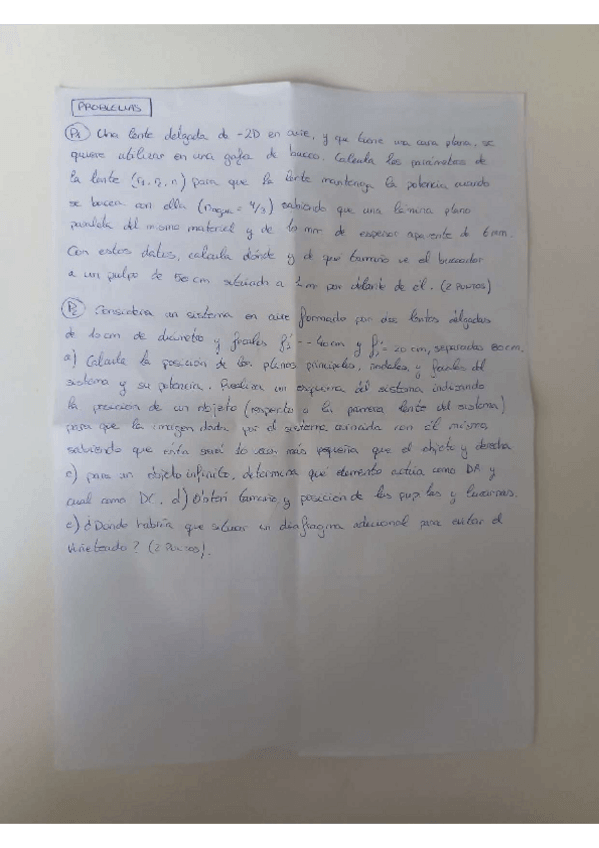 PROBLEMAS
P1 Una lente delgada de -2D en aire, y que tiene una cara plana, se
quiere utilizar en una gafa de buceo. Calcula los parámetros de
la lente (r1, r2, n) para que la lente mantenga la potencia cuando
se bucea con ella (nagua = 4/3) sabiendo que una lámina plano
paralela del mismo material y de 10 mm de espesor aparente de 6 mm.
Con estos datos, calcula dónde y de qué tamaño ve el buceador
a un pulpo de 50 cm situado a m por delante de él. (2 PUNTOS)
P2 Considera un sistema en aire formado por dos lentes delgadas
de 10 cm de diámetro y focales f1' = -40 cm y f2' = 20 cm, separadas 80 cm.
a) Calcula la posición de los planos principales, nodales, y focales del
sistema y su potencia. Realiza un esquema del sistema indicando
la posición de un objeto (respecto a la primera lente del sistema)
para que la imagen dada por el sistema coincida con el mismo,
sabiendo que esta será 10 veces más pequeña que el objeto y derecha
c) para un objeto infinito, determina qué elemento actúa como DA y
cual como DC. d) Obtén tamaño y posición de las pupilas y lucarnas.
e) ¿Donde habría que situar un diafragma adicional para evitar el
viñeteado? (2 PUNTOS).